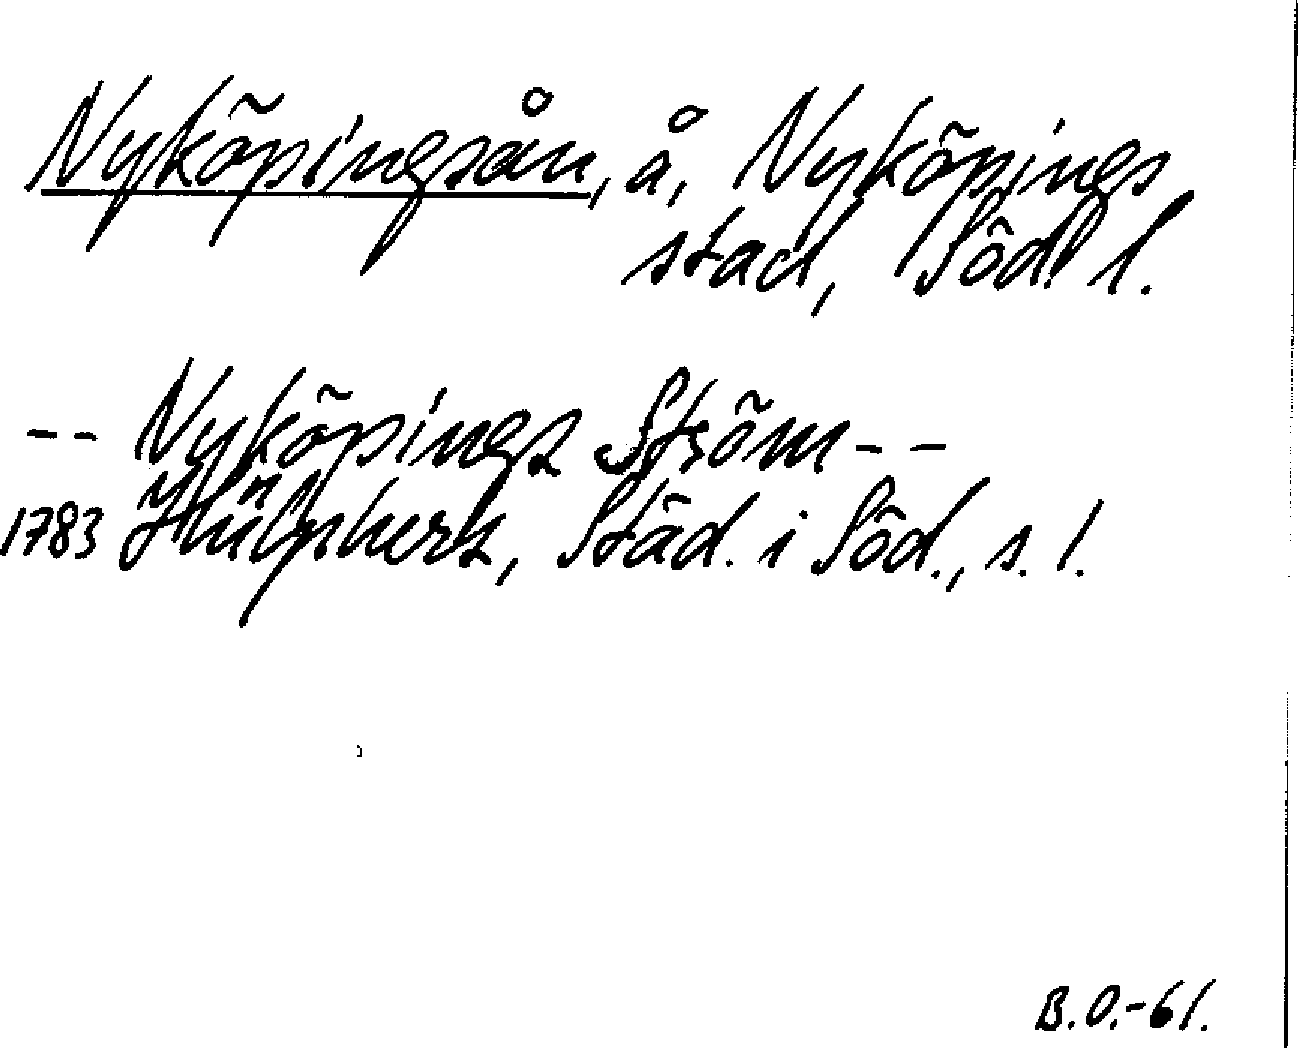 Nyköpingsån, å, Nyköpings
stad, Söd. l.
-- Nyköpings Ström --
1783 Hülphers, Städ. i Söd., s. 1.
B.O.-61.